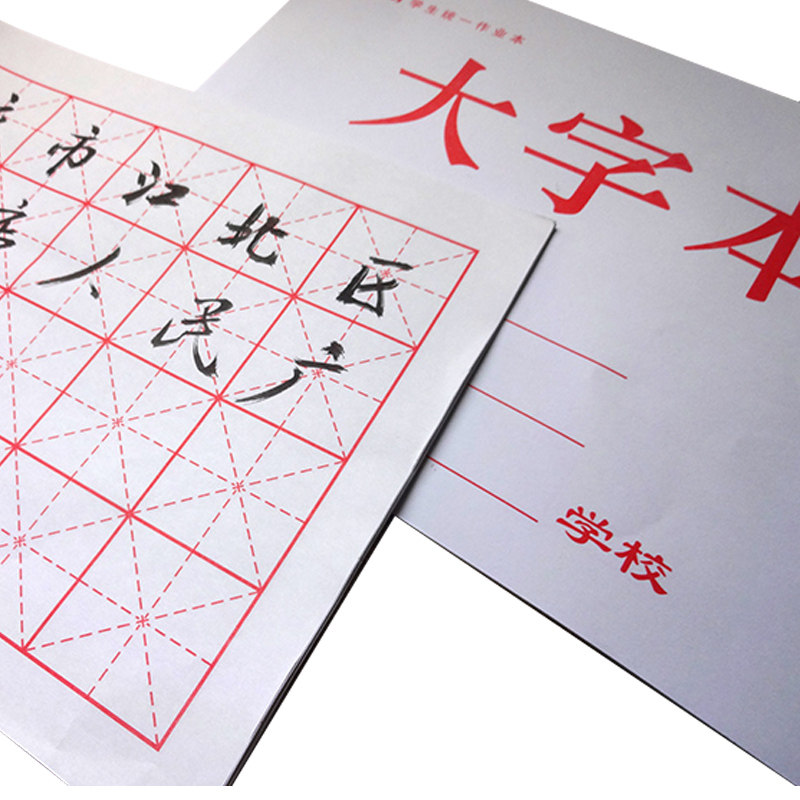 学生统一作业本
大字本
市江北区
人民广
学校